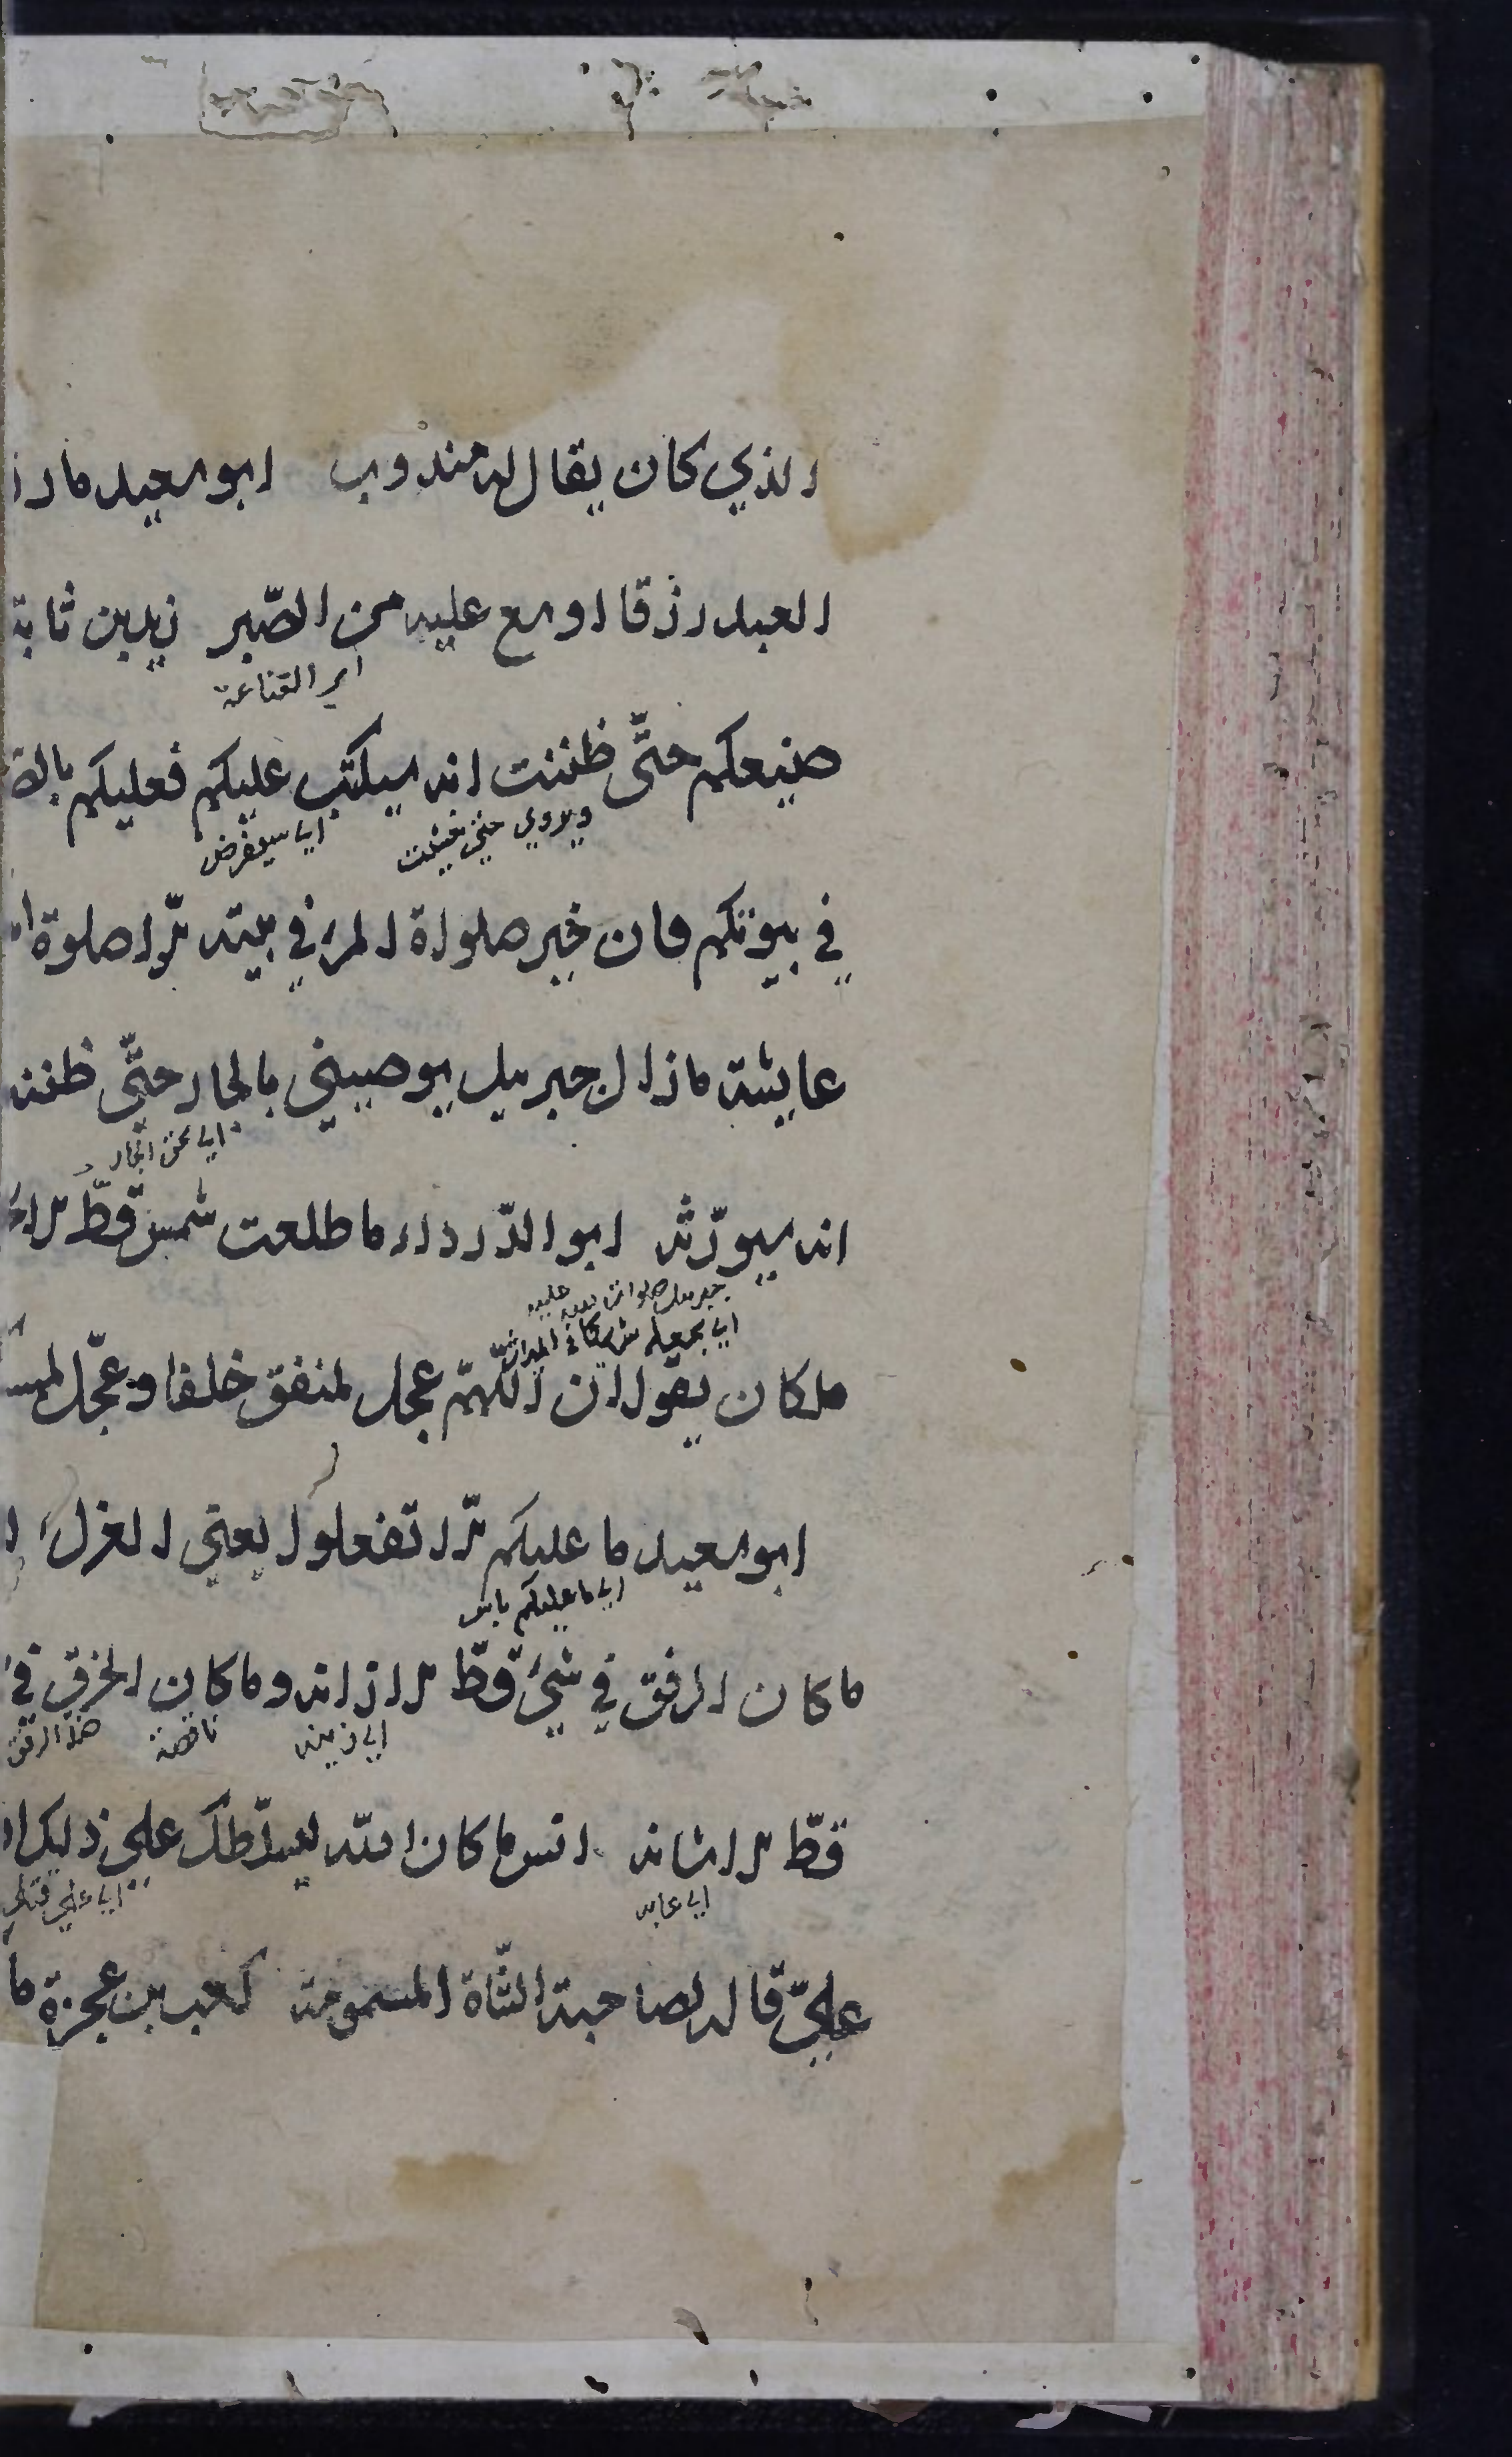 الذي كان يقال له مندوب ابو سعيد ما رز
العبد رزقا اوسع عليه من الصّبر زيد بن ثابة
اي القناعة
صنيعكم حتّى ظننت انه سيكتب عليكم فعليكم بالصـ
ويروي حتى خشيت
اي سيفرض
في بيوتكم فان خير صلواة المرء في بيته الّا صلوة ا
عايشة مازال جبريل يوصيني بالجار حتّى ظننت
اي بحق الجار
انه سيورّثه ابو الدّرداء ما طلعت شمس قطّ الا
جبريل صلوات عليه
اي يجعله شريكا في الميراث
ملكان يقولان اللهمّ عجل لمنفق خلفا وعجّل لممسـ
ابو سعيد ما عليكم الّا تفعلوا يعني العزل
اي ما عليكم باس
ما كان الرفق في شيء قطّ الا زانه وما كان الخرق في
اي زينه
ناقصة
ضد الرفق
قطّ الا شانه انس ما كان الله ليسلّطك على ذلك
اي عابه
اي على قتلي
عليّ قاله لصاحبة الشّاة المسمومة كعب بن عجرة ما